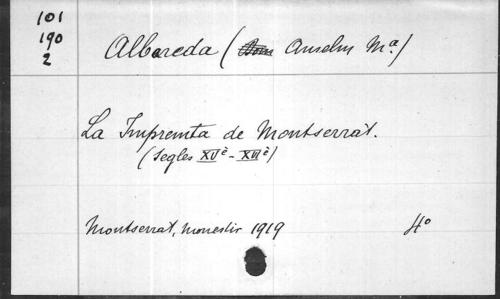 101
190
2
Albareda (Dom Anselm Mª)
La Impremta de Montserrat.
(Segles XVè - XVIè)
Montserrat, monestir 1919 4º